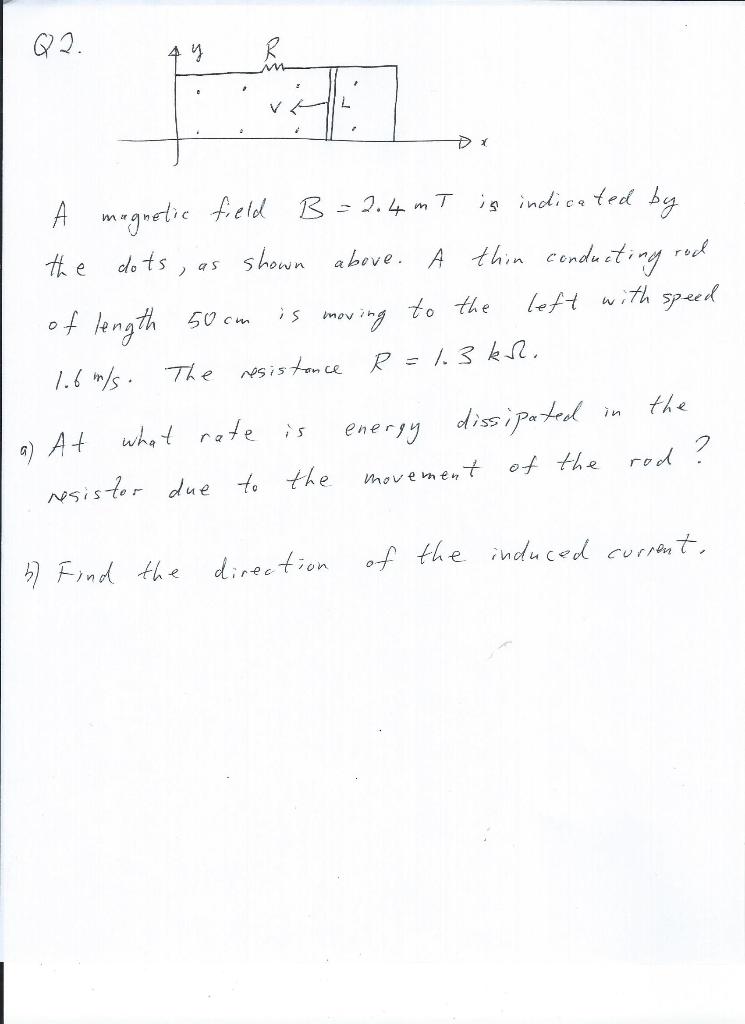 Q2.
y
R
V
L
x
A magnetic field B = 2.4 mT is indicated by
the dots, as shown above. A thin conducting rod
of length 50 cm is moving to the left with speed
1.6 m/s. The resistance R = 1.3 kΩ.
a) At what rate is energy dissipated in the
resistor due to the movement of the rod?
b) Find the direction of the induced current.